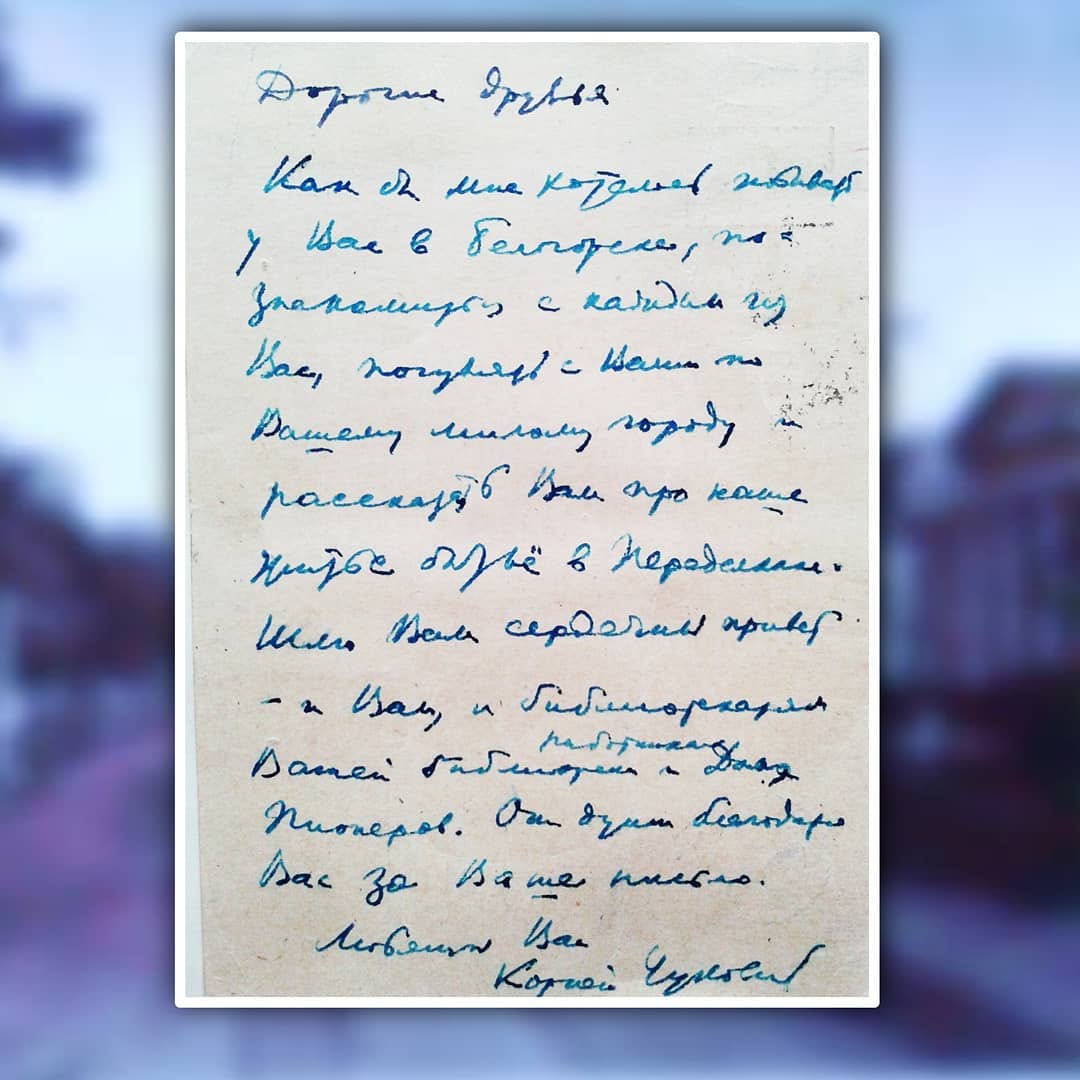 Дорогие друзья
Как бы мне хотелось побывать
у Вас в Белогорске, по-
знакомиться с каждым из
Вас, погулять с Вами по
Вашему милому городу и
рассказать Вам про наше
житье бытьё в Переделкине.
Шлю Вам сердечный привет
- и Вам, и библиотекарям
работникам
Вашей библиотеки и Дома
Пионеров. От души благодарю
Вас за Ваше письмо.
Любящий Вас
Корней Чуковский